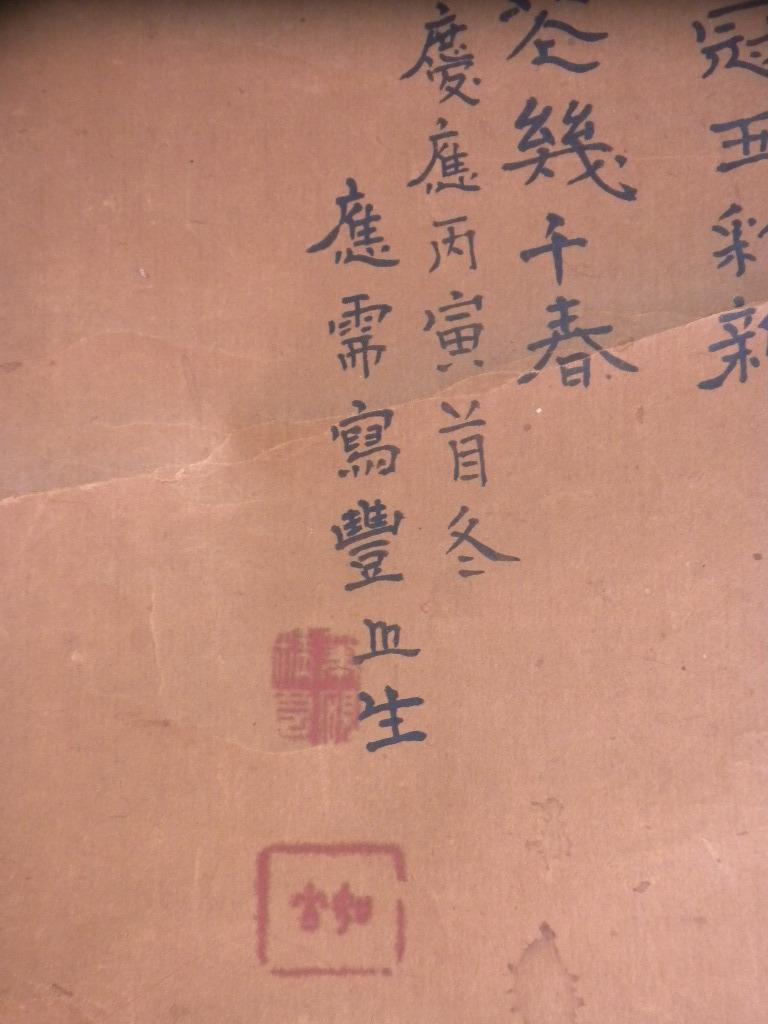 冠五彩新
幾千春
慶應丙寅首冬
應需寫豐皿生